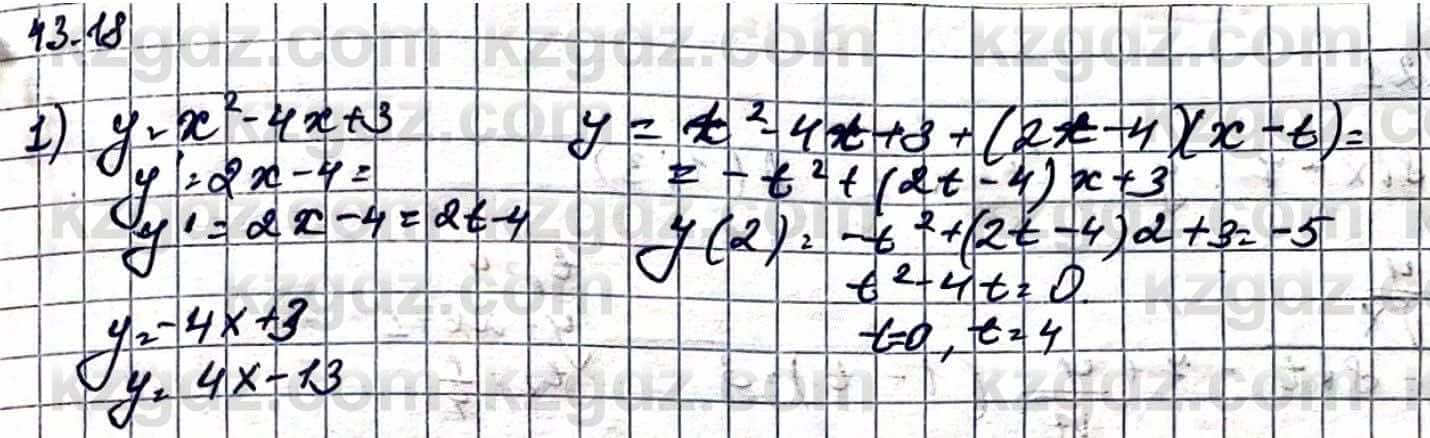 43.18
1) y = x² - 4x + 3
y' = 2x - 4 =
y' = 2x - 4 = 2t - 4
y = -4x + 3
y = 4x - 13
y = t² - 4t + 3 + (2t - 4)(x - t) =
= -t² + (2t - 4)x + 3
y(2) = -t² + (2t - 4)2 + 3 = -5
t² - 4t = 0
t = 0, t = 4
kzgdz.com kzgdz.com kzgdz.com
kzgdz.com kzgdz.com
kzgdz.com kzgdz.com kzgdz.com
kzgdz.com kzgdz.com
kzgdz.com kzgdz.com kzgdz.com